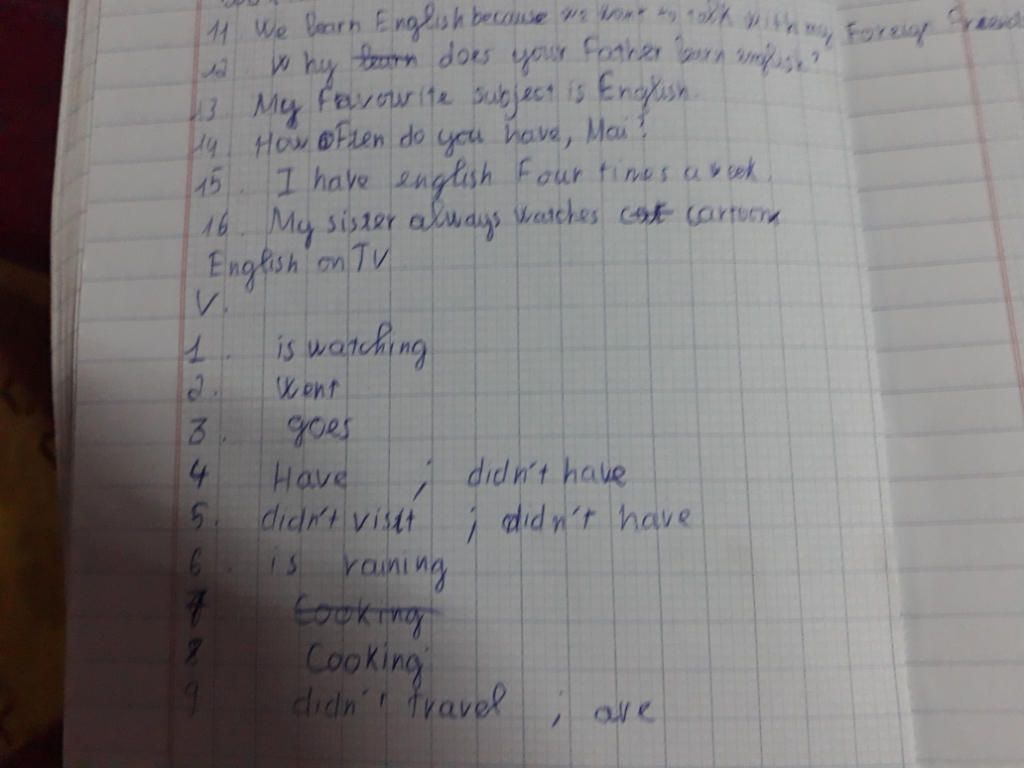 11. We learn English because we want to talk with my Foreign Friend
12. Why learn does your Father learn english?
13. My Favourite subject is English.
14. How oFten do you have, Mai?
15. I have english Four times a week.
16. My sister always watches cartoon
English on TV
V.
1. is watching
2. Went
3. goes
4 Have ; didn't have
5. didn't visit ; didn't have
6. is raining
7 Cooking
8 Cooking
9 didn't travel ; are